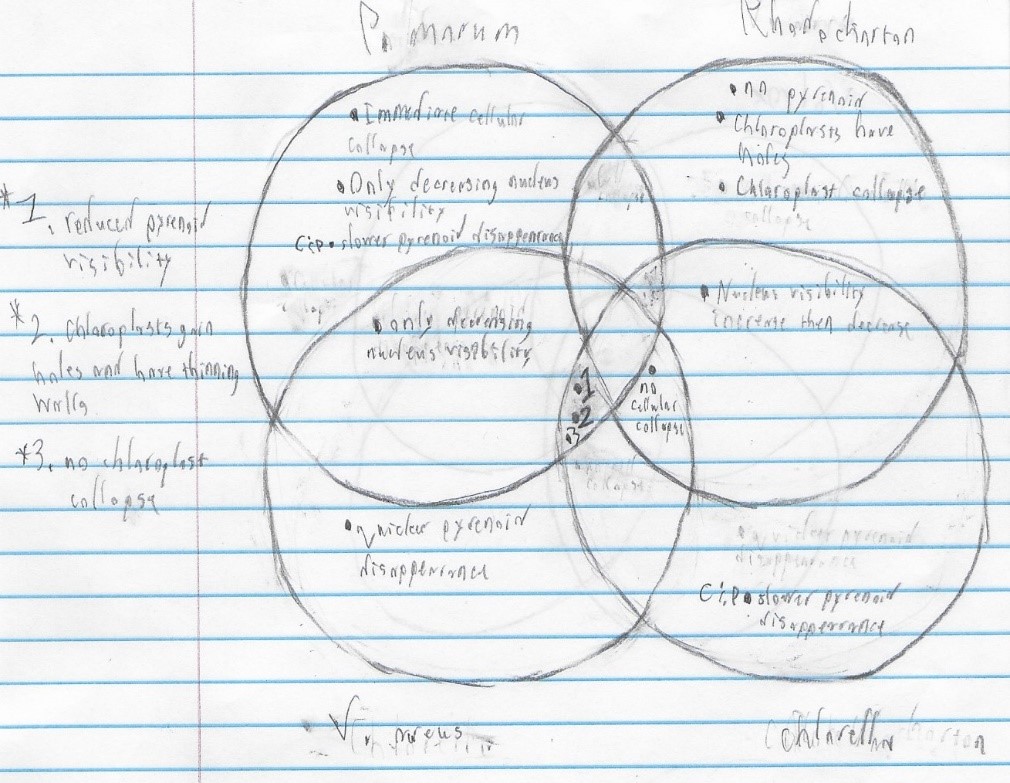 P. marum
Rhodochorton
• Immediate cellular
collapse
• Only decreasing nucleus
visibility
C;P • slower pyrenoid disappearance
• no pyrenoid
• Chloroplasts have
holes
• Chloroplast collapse
*1. reduced pyrenoid
visibility
*2. Chloroplasts gain
holes and have thinning
walls
*3. no chloroplast
collapse
• only decreasing
nucleus visibility
• Nucleus visibility
increase then decrease
• 1
• 2
• 3
• no
cellular
collapse
• quicker pyrenoid
disappearance
• quicker pyrenoid
disappearance
C;P • slower pyrenoid
disappearance
V. aureus
Chlorella